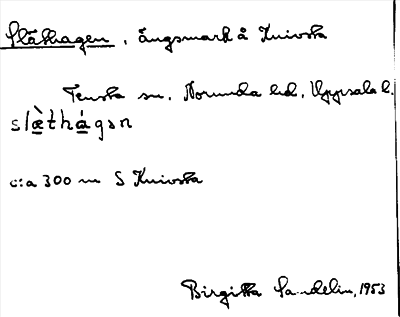 Släthagen, ängsmark å Knivsta
Tensta sn, Norunda hd, Uppsala l.
slæ̀thágən
c:a 300 m S Knivsta
Birgitta Sandelin, 1953